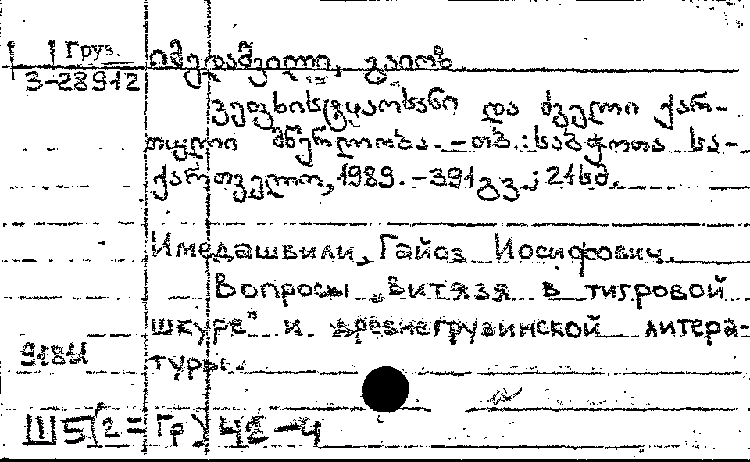 Груз. იმედაშვილი, გაიოზ.
3-28912
ვეფხისტყაოსანი და ძველი ქარ-
თული მწერლობა. - თბ.: საბჭოთა სა-
ქართველო, 1989. - 391 გვ.; 21 სმ.
Имедашвили, Гайоз Иосифович.
Вопросы „Витязя в тигровой
шкуре" и древнегрузинской литера-
туры.
Ш5(2=Гр)